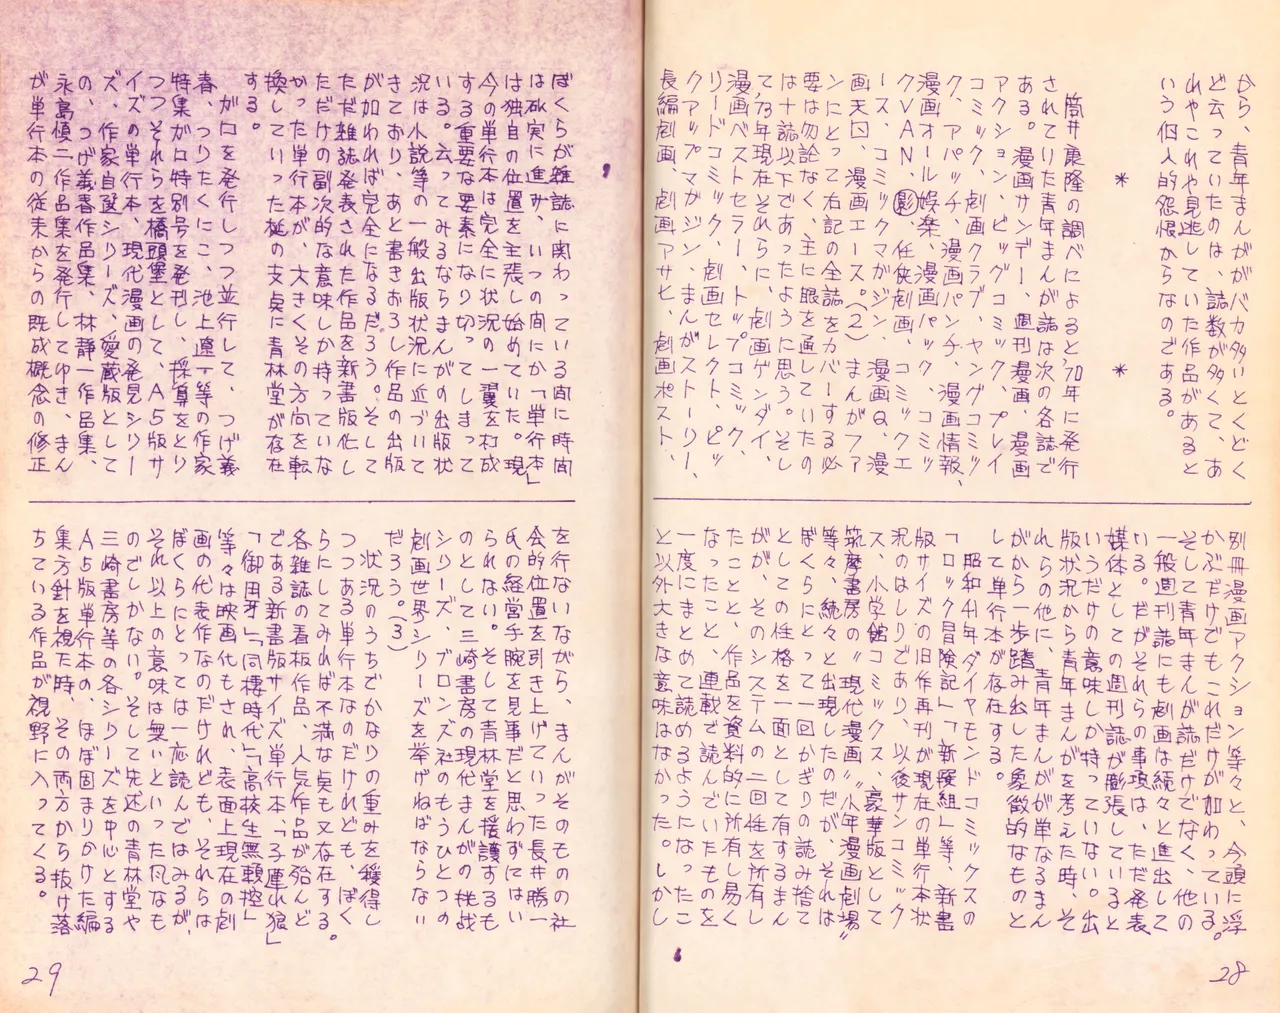 から、青年まんががバカ多いとくどく
ど云っていたのは、誌数が多くて、あ
れやこれや見逃していた作品があると
いう個人的怨恨からなのである。
＊　　　　　＊
筒井康隆の調べによると70年に発行
されていた青年まんが誌は次の各誌で
ある。漫画サンデー、週刊漫画、漫画
アクション、ビッグコミック、プレイ
コミック、劇画クラブ、ヤングコミッ
ク、アパッチ、漫画パンチ、漫画情報、
漫画オール娯楽、漫画パック、コミッ
クＶＡＮ、㊞影、任侠劇画、コミックエ
ース、コミックマガジン、漫画Ｑ、漫
画天国、漫画エース。（２）まんがファ
ンにとって右記の全誌をカバーする必
要は勿論なく、主に眼を通していたの
は十誌以下であったように思う。そし
て、73年現在それらに、劇画ゲンダイ、
漫画ベストセラー、トップコミック、
リードコミック、劇画セレクト、ビッ
クアップマガジン、まんがストーリー、
長編劇画、劇画アサヒ、劇画ポスト、
別冊漫画アクション等々と、今頭に浮
かぶだけでもこれだけが加わっている。
そして青年まんが誌だけでなく、他の
一般週刊誌にも劇画は続々と進出して
いる。だがそれらの事項は、ただ発表
媒体としての週刊誌が膨張していると
いうだけの意味しか持っていない。出
版状況から青年まんがを考えた時、そ
れらの他に、青年まんがが単なるまん
がから一歩踏み出した象徴的なものと
して単行本が存在する。
昭和41年ダイヤモンドコミックスの
「ロック冒険記」「新選組」等、新書
版サイズの旧作再刊が現在の単行本状
況のはしりであり、以後サンコミック
ス、小学館コミックス、豪華版として
筑摩書房の〝現代漫画〟〝少年漫画劇場〟
等々、続々と出現したのだが、それは
ぼくらにとって一回かぎりの読み捨て
としての性格を一面として有するまん
がが、そのシステムの二回性を所有し
たことと、作品を資料的に所有し易く
なったこと、連載で読んでいたものを
一度にまとめて読めるようになったこ
と以外大きな意味はなかった。しかし
28
ぼくらが雑誌に関わっている間に時間
は砿実に進み、いつの間にか「単行本」
は独自の位置を主張し始めていた。現
今の単行本は完全に状況の一翼を打成
する重要な要素になり切ってしまって
いる。云ってみるならまんがの出版状
況は小説等の一般出版状況に近づいて
きており、あと書きおろし作品の出版
が加われば完全になるだろう。そして
ただ雑誌発表された作品を新書版化し
ただけの副次的な意味しか持っていな
かった単行本が、大きくその方向を転
換していった梃の支点に青林堂が存在
する。
ガロを発行しつつ並行して、つげ義
春、つりたくにこ、池上遼一等の作家
特集ガロ特別号を発刊し、採算をとり
つつそれらを橋頭堡として、Ａ５版サ
イズの単行本、現代漫画の発見シリー
ズ、作家自選シリーズ、愛蔵版として
の、つげ義春作品集、林静一作品集、
永島慎二作品集を発行してゆき、まん
が単行本の従来からの既成概念の修正
を行ないながら、まんがそのものの社
会的位置を引き上げていった長井勝一
氏の経営手腕を見事だと思わずにはい
られない。そして青林堂を援護するも
のとして三崎書房の現代まんがの挑戦
シリーズ、ブロンズ社のもうひとつの
劇画世界シリーズを挙げねばならない
だろう。（３）
状況のうちでかなりの重みを獲得し
つつある単行本なのだけれども、ぼく
らにしてみれば不満な点も又存在する。
各雑誌の看板作品、人気作品が殆んど
である新書版サイズ単行本、「子連れ狼」
「御用牙」「同棲時代」「高校生無頼控」
等々は映画化もされ、表面上現在の劇
画の代表作なのだけれども、それらは
ぼくらにとっては一応読んではみるが、
それ以上の意味は無いといった凡なも
のでしかない。そして先述の青林堂や
三崎書房等の各シリーズを中心とする
Ａ５版単行本の、ほぼ固まりかけた編
集方針を視た時、その両方から抜け落
ちている作品が視野に入ってくる。
29